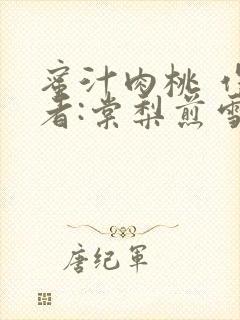 蜜汁肉桃
者:棠梨煎雪
唐纪军